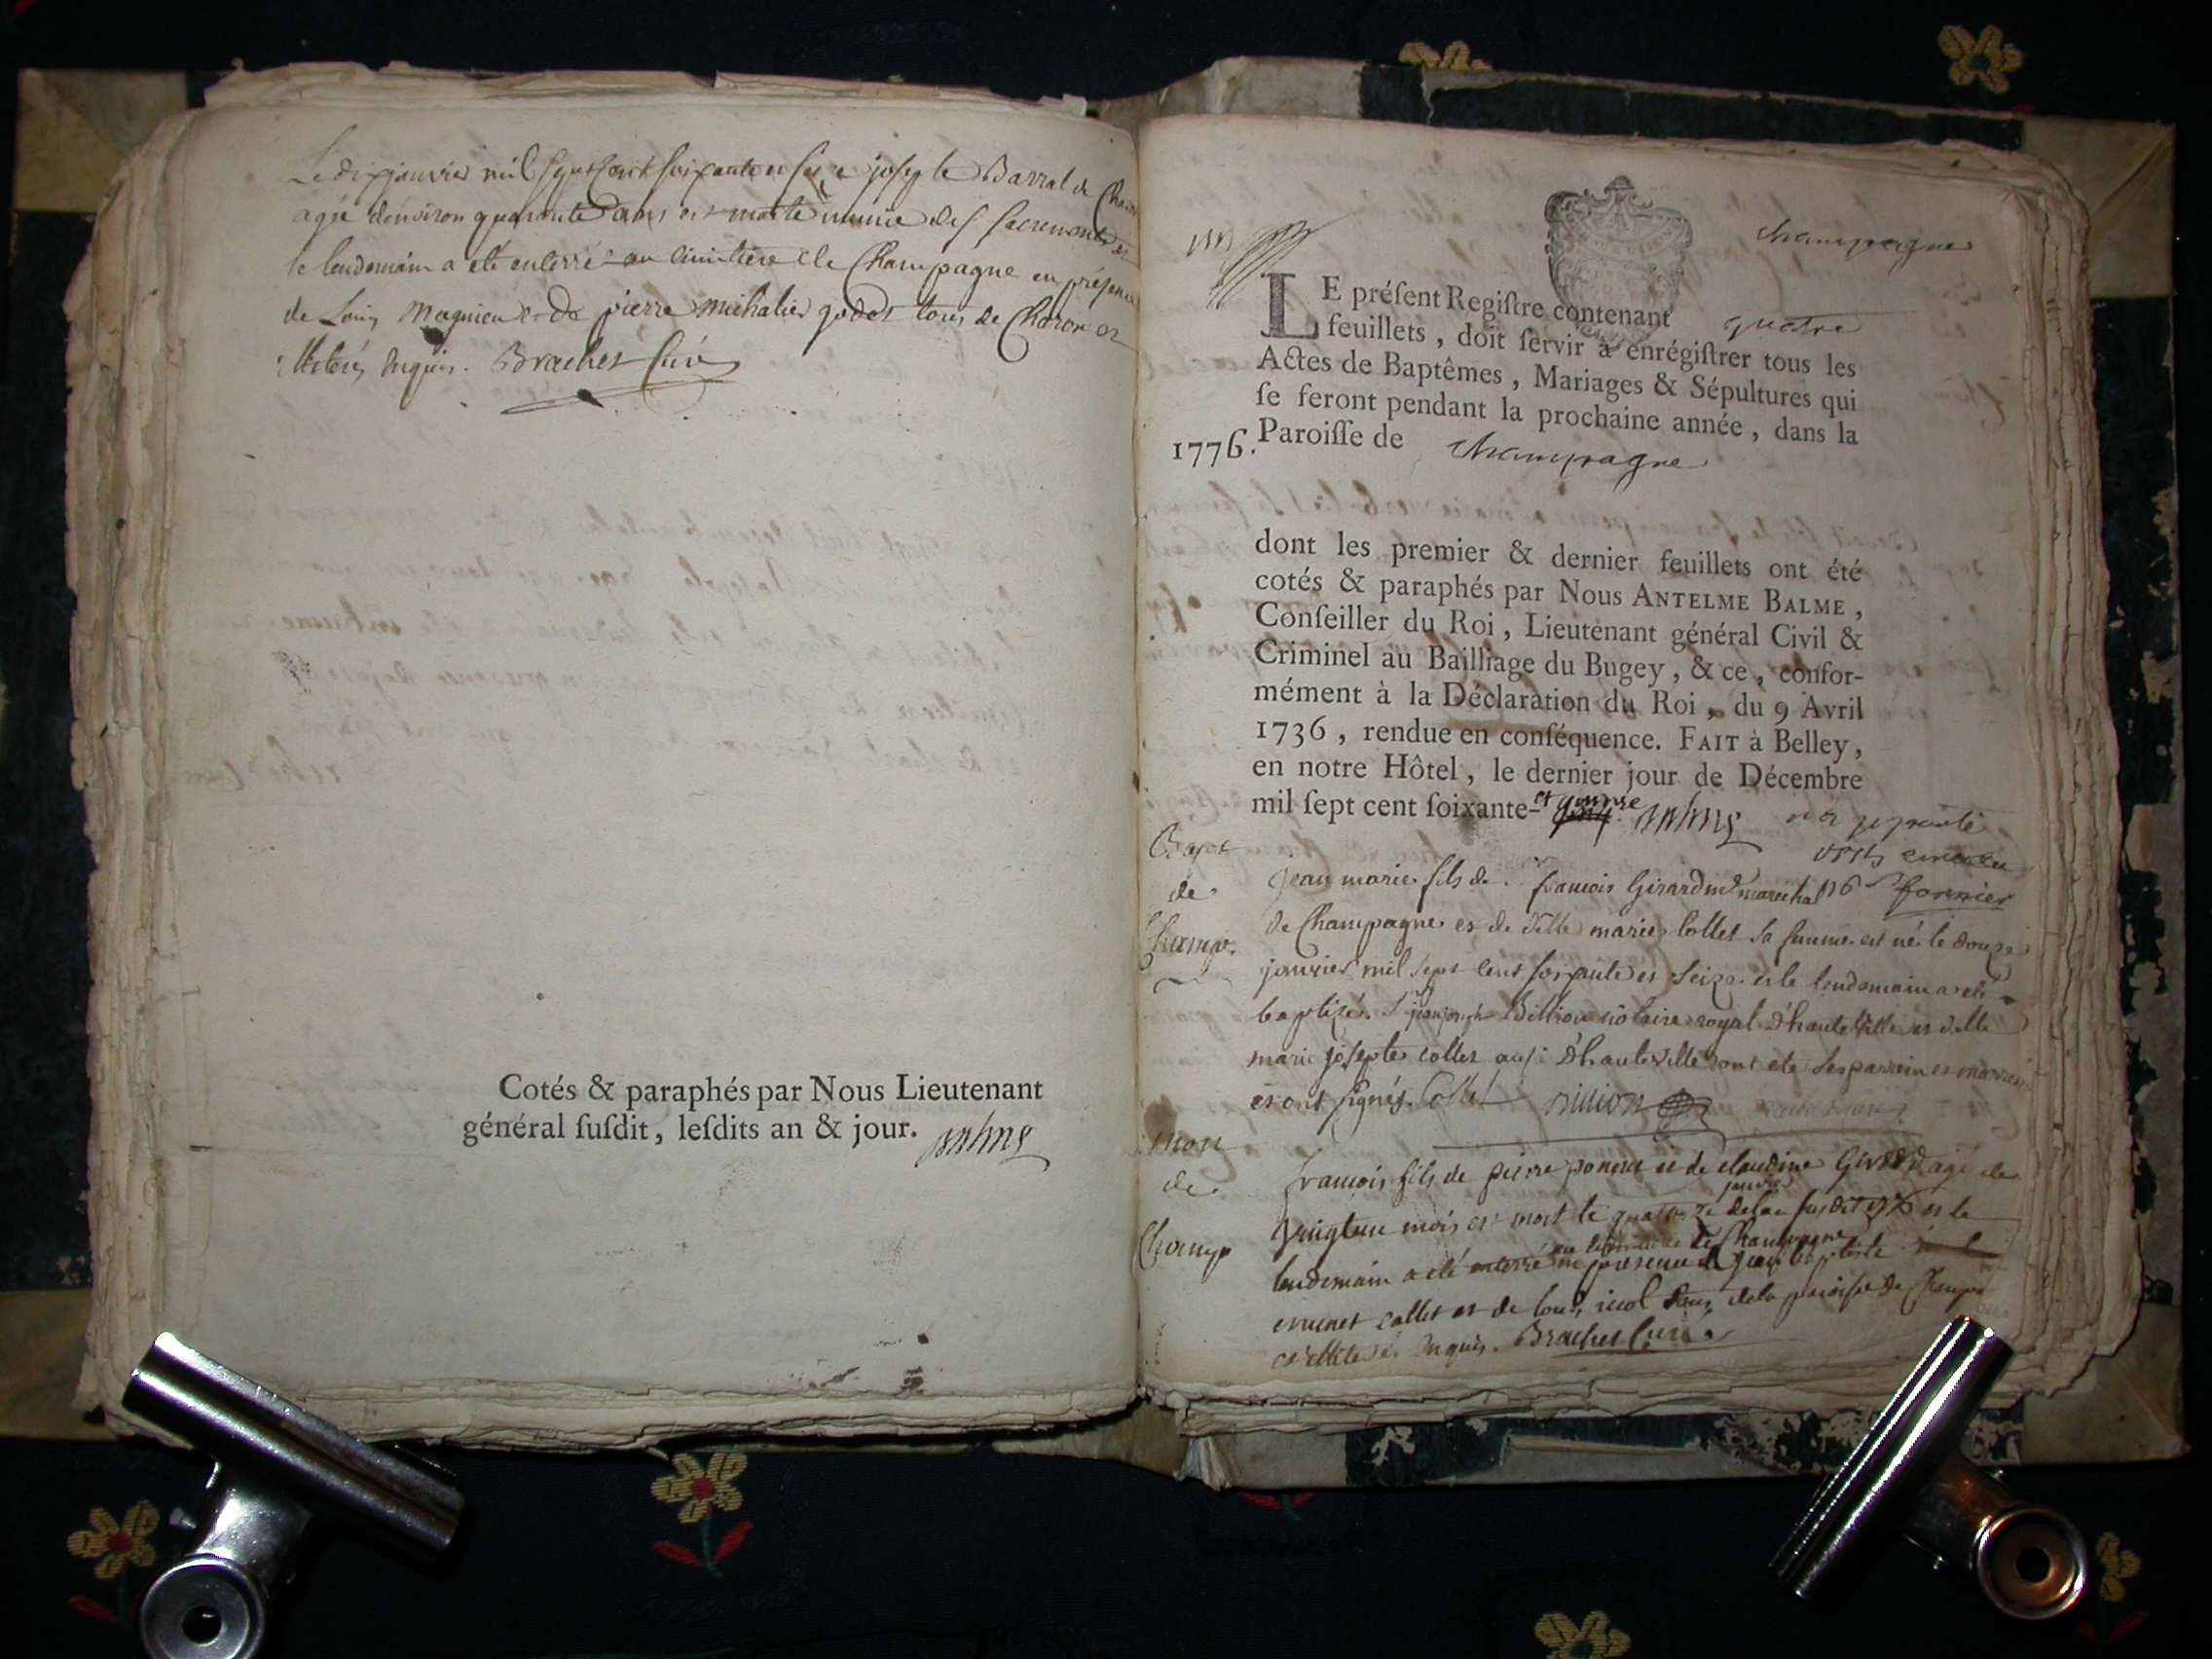 Le dix janvier mil sept cent soixante et seize josepte Barral de Charon
agée d'environ quarante ans est morte munie des sacrements et
le lendemain a été enterrée au cimitière de Champagne en présence
de Louis Magnieu et de pierre michalier godet tous de Charon et
illiterés enquis. Brachet Curé
Cotés & paraphés par Nous Lieutenant
général ſuſdit, leſdits an & jour.
Champagne
LE préſent Regiſtre contenant quatre
feuillets, doit ſervir à enrégiſtrer tous les
Actes de Baptêmes, Mariages & Sépultures qui
ſe feront pendant la prochaine année, dans la
1776. Paroiſſe de Champagne
dont les premier & dernier feuillets ont été
cotés & paraphés par Nous ANTELME BALME,
Conſeiller du Roi, Lieutenant général Civil &
Criminel au Bailliage du Bugey, & ce, confor-
mément à la Déclaration du Roi, du 9 Avril
1736, rendue en conſéquence. FAIT à Belley,
en notre Hôtel, le dernier jour de Décembre
mil ſept cent ſoixante- et quinze
Bapt
de
Champ.
jean marie fils de françois Girard marechal
de Champagne et de dlle marie Collet sa femme est né le douze
janvier mil sept cent soixante et seize et le lendemain a été
baptizé. Sr jean joseph Billion notaire royal d'hauteville et dlle
marie josepte collet aussi d'hauteville ont été ses parrein et marreine
et ont signés. Collet Billion
mort
de
Champ
françois fils de pierre poncet et de claudine Girard agé de
vingt un mois est mort le quatorze janvier de l'an susdit 1776 et le
lendemain a été enterré au cimitière de Champagne en présence de jean baptiste
collet et de Louis de la paroisse de Champ
et illiterés enquis. Brachet Curé